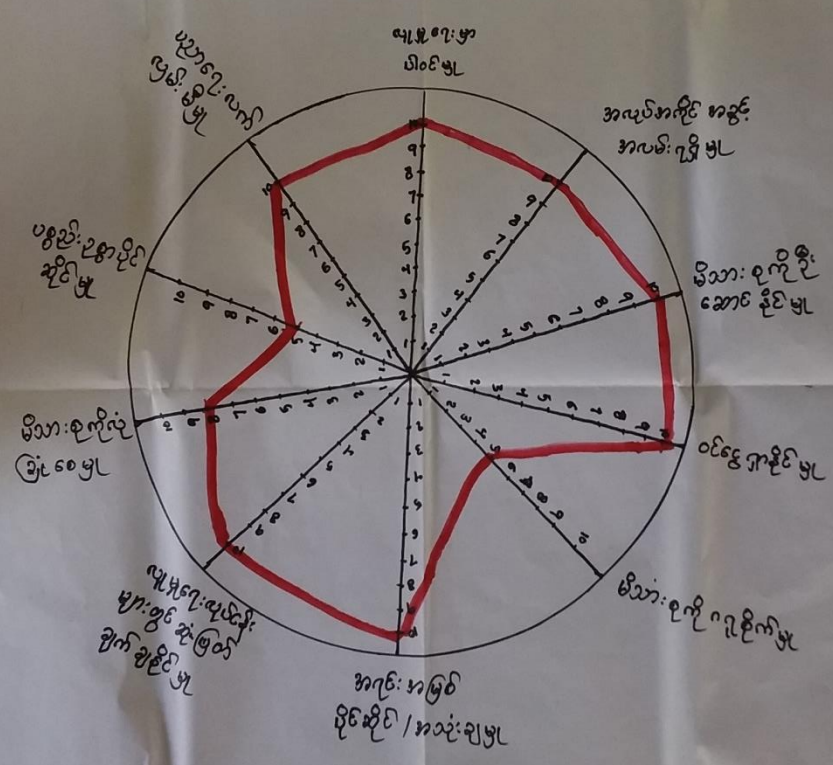 လူမှုရေးမှာ
ပါဝင်မှု
အလုပ်အကိုင် အခွင့်
အလမ်းရရှိမှု
မိသားစုကိုဦး
ဆောင်နိုင်မှု
ဝင်ငွေရှာနိုင်မှု
မိသားစုကို ဂရုစိုက်မှု
အရင်းအမြစ်
ပိုင်ဆိုင် / အသုံးချမှု
လူမှုရေးလုပ်ငန်း
များတွင် ဆုံးဖြတ်
ချက်ချနိုင်မှု
မိသားစုကိုလုံ
ခြုံစေမှု
ပစ္စည်းဥစ္စာပိုင်
ဆိုင်မှု
ပညာရေးလက်
လှမ်းမီမှု